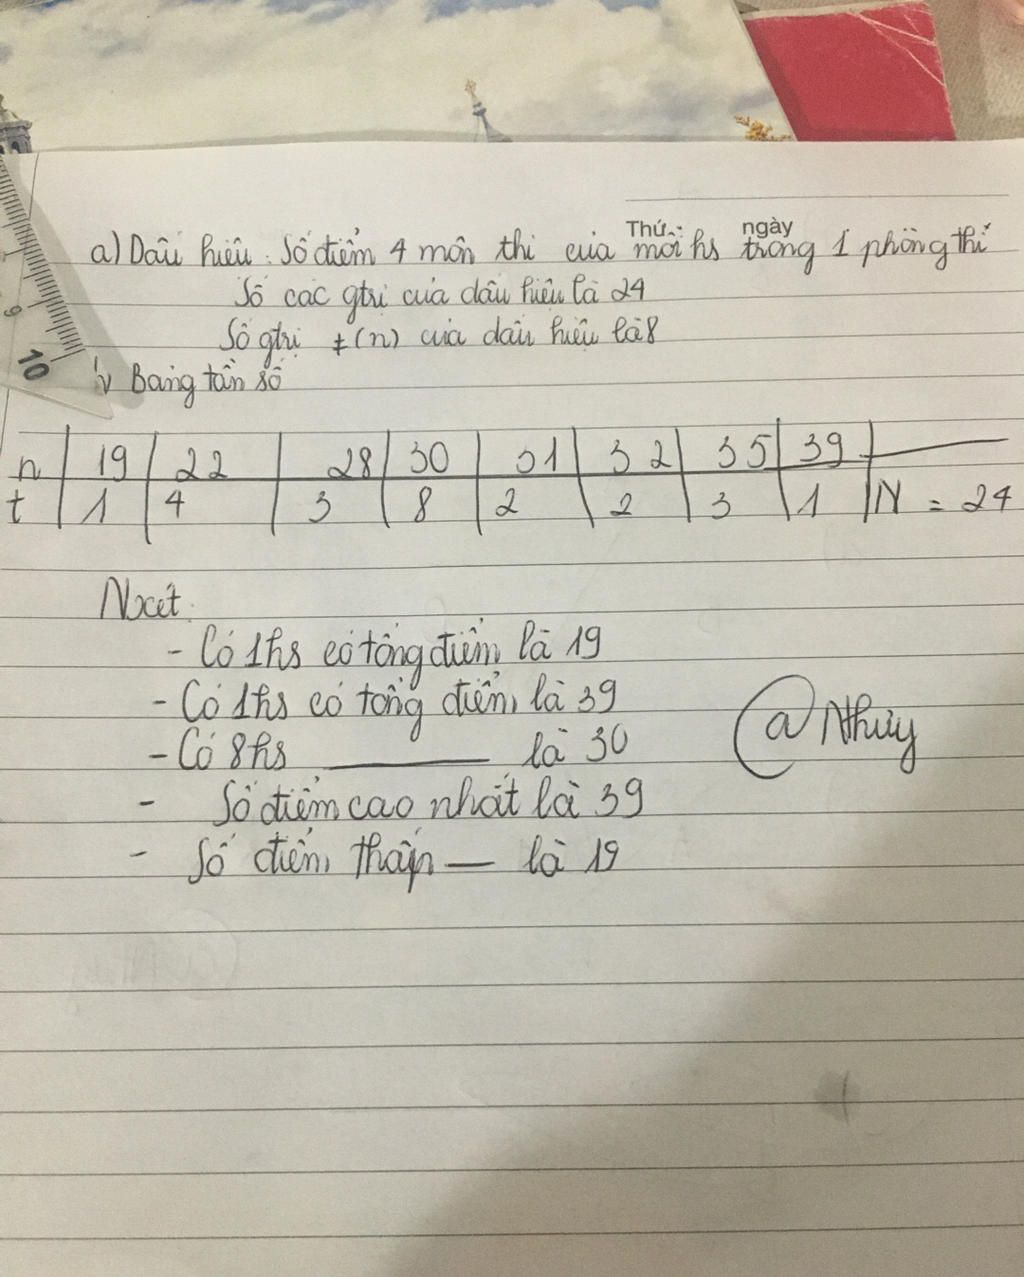 Thứ ngày
a) Dấu hiệu: Số điểm 4 môn thi của mỗi hs trong 1 phòng thi
Số các gtrị của dấu hiệu là 24
Số gtrị ≠ (n) của dấu hiệu là 8
b/ Bảng tần số
n | 19 | 22 | 28 | 30 | 31 | 32 | 35 | 39 |
t | 1 | 4 | 3 | 8 | 2 | 2 | 3 | 1 | N = 24
Nxét:
- Có 1hs có tổng điểm là 19
- Có 1hs có tổng điểm là 39
- Có 8hs ——— là 30
@ Nthuy
- Số điểm cao nhất là 39
- Số điểm thấp — là 19
9
10